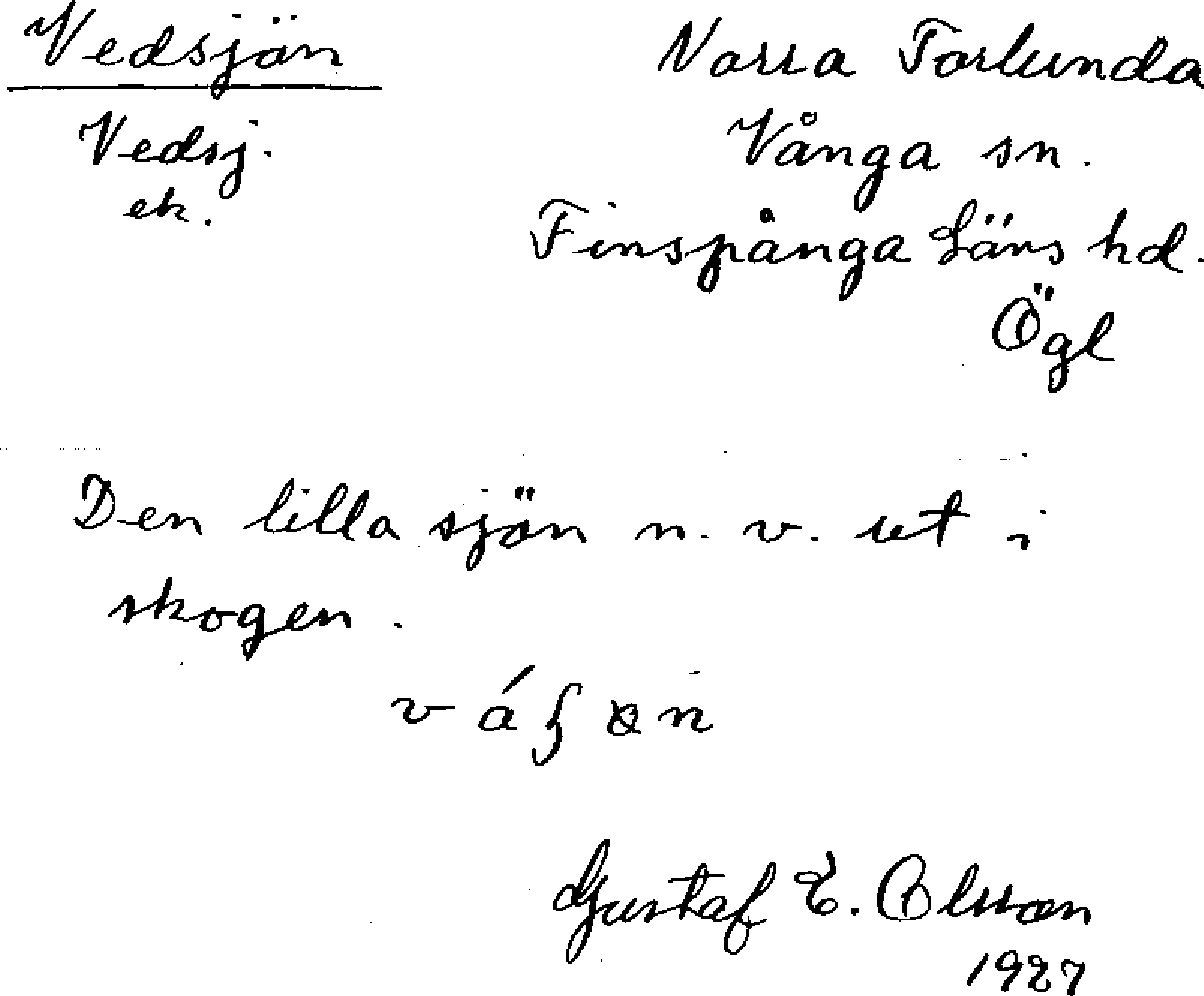 Vedsjön
Vedsj.
ek.
Norra Torlunda
Vånga sn.
Finspånga Läns hd.
Ögl
Den lilla sjön n. v. ut i
skogen.
Gustaf E. Olsson
1927